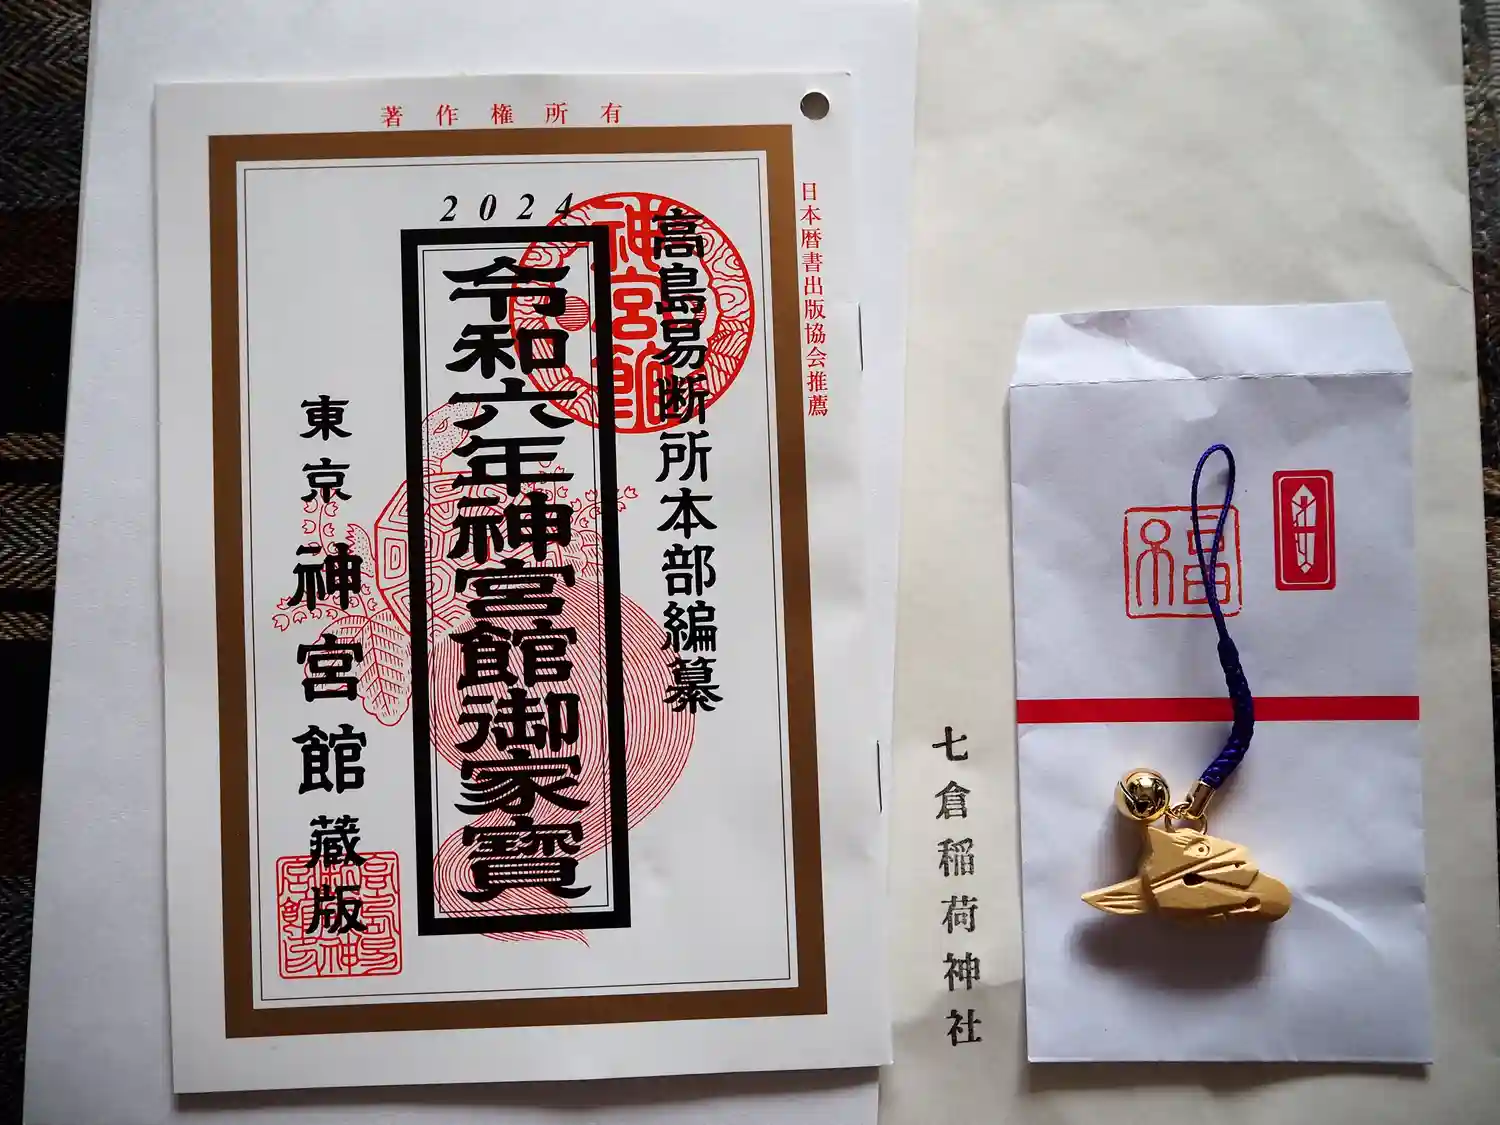 著作権所有
日本暦書出版協会推薦
2024
神宮館
高島易断所本部編纂
令和六年神宮館御家寶
東京神宮館蔵版
七倉稲荷神社
福